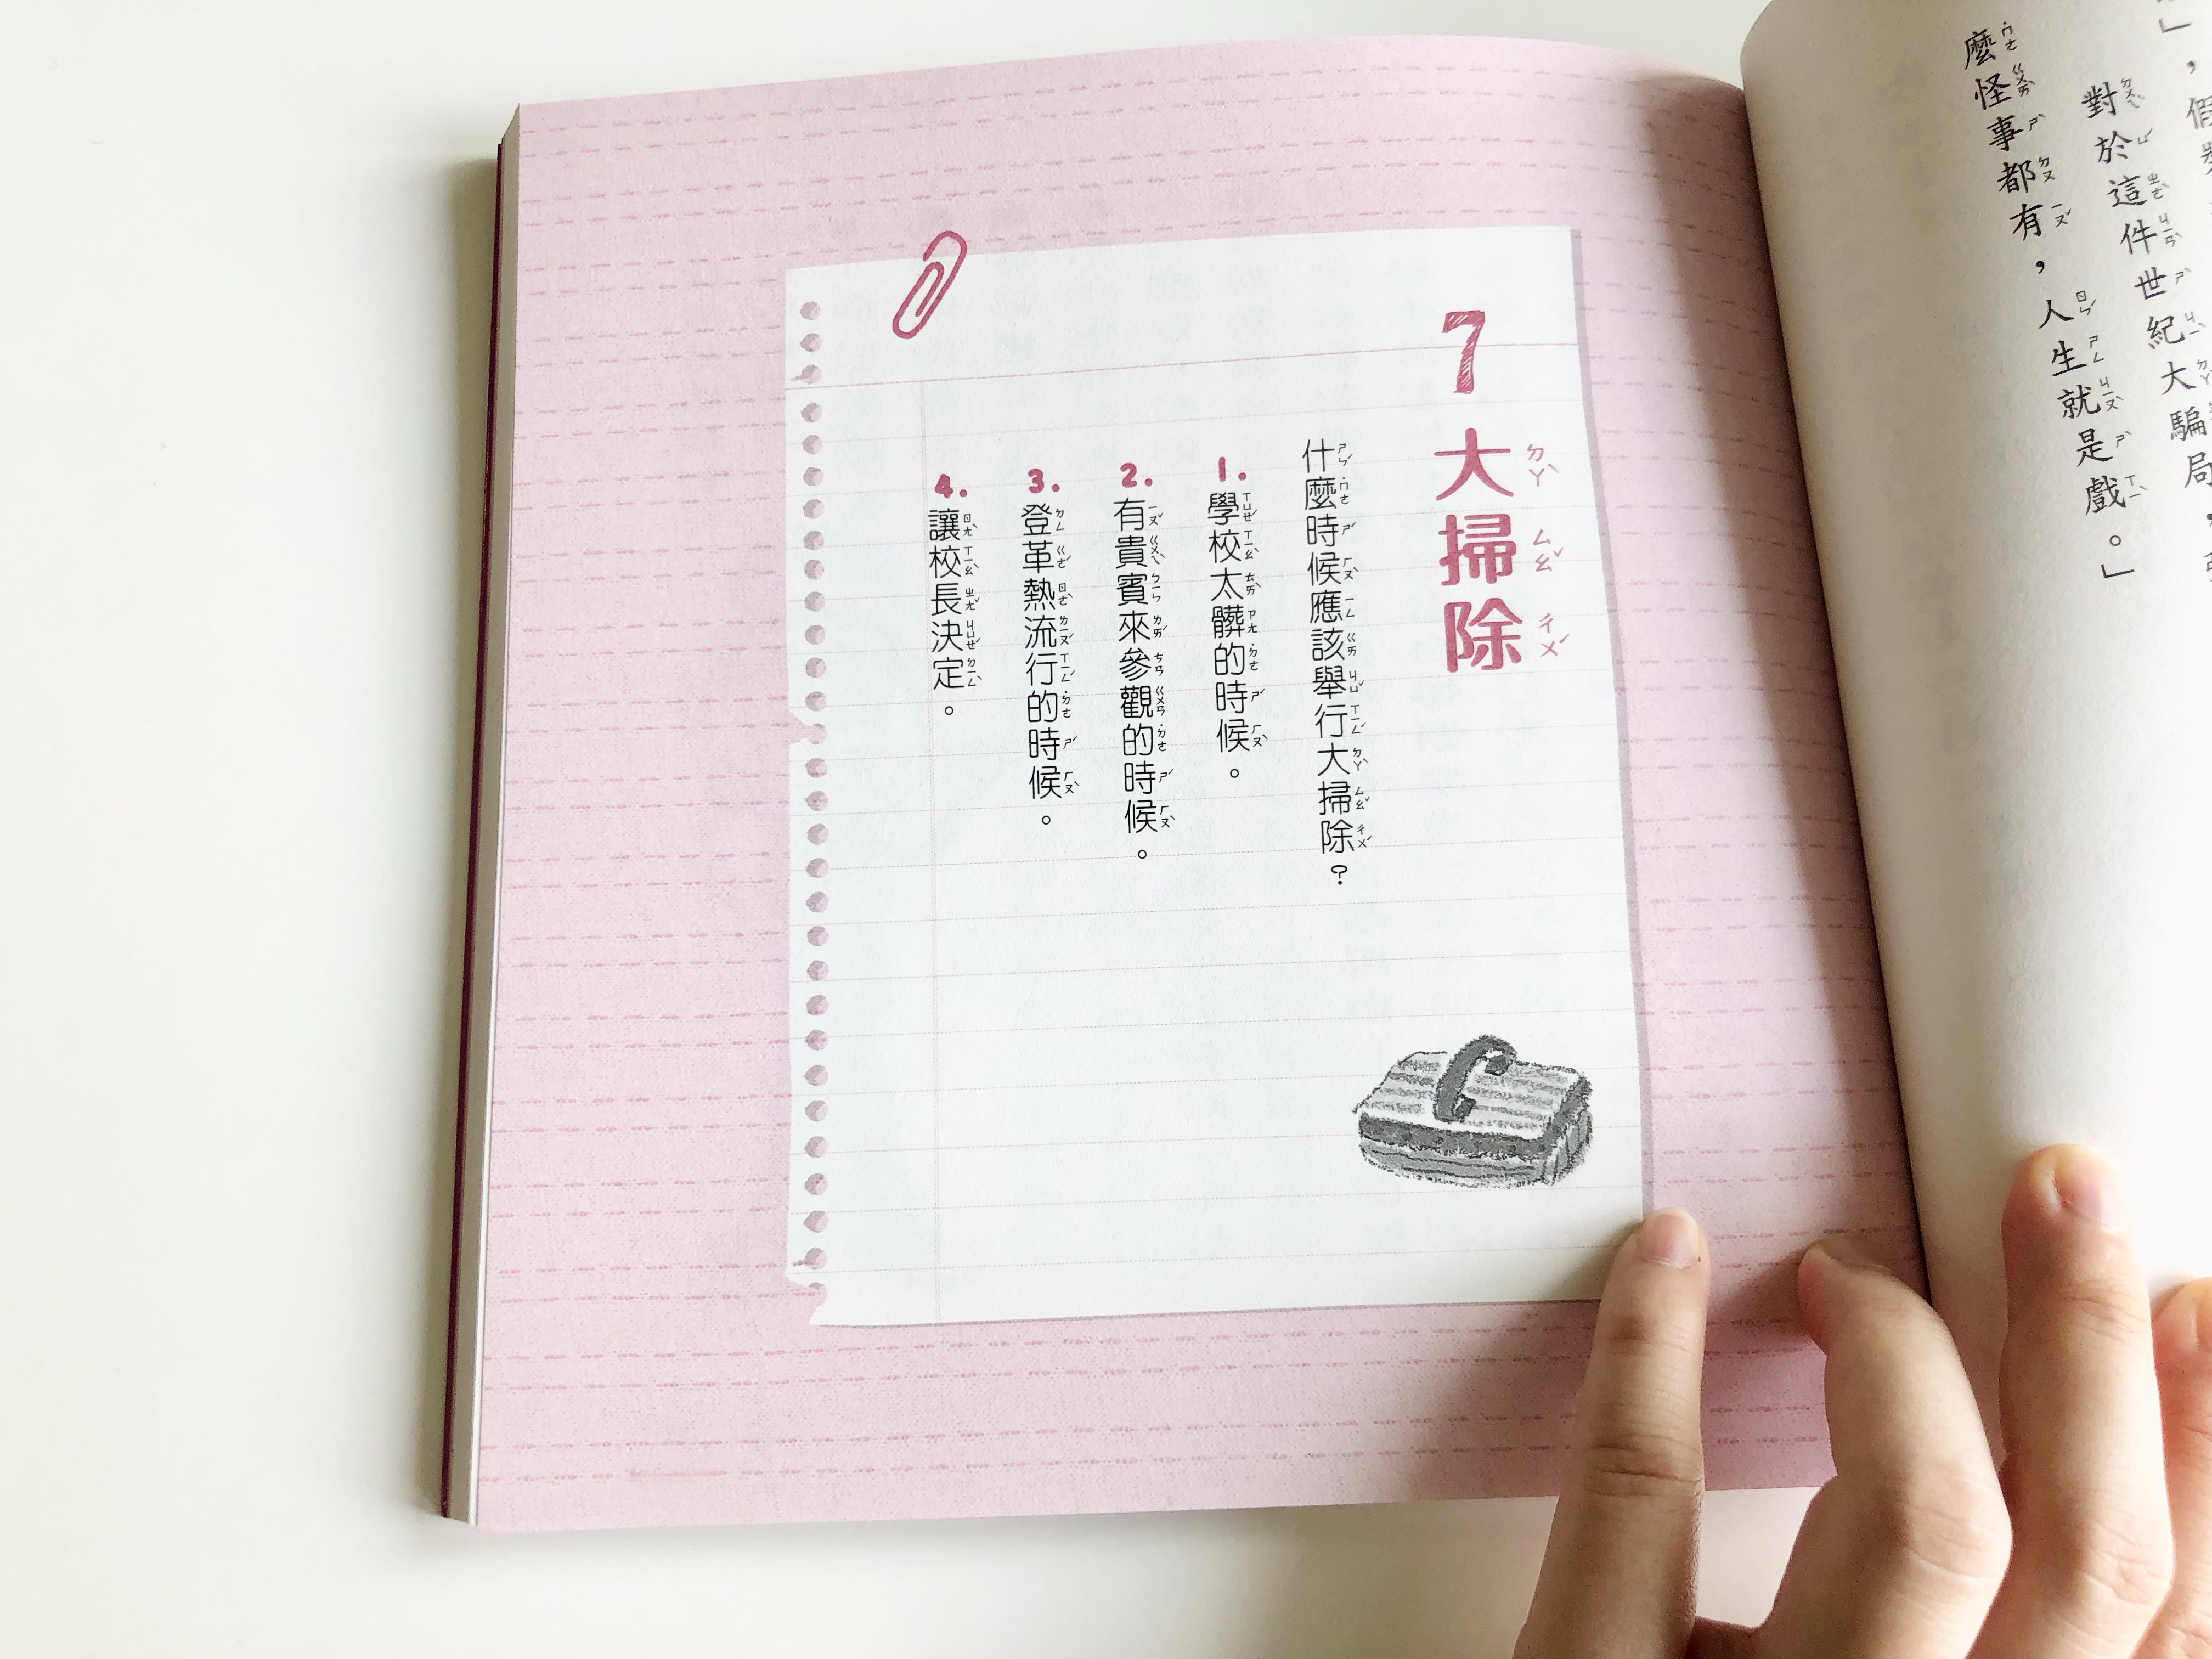 」，假
對於這件世紀大騙局，
麼怪事都有，人生就是戲。」
7 大掃除
什麼時候應該舉行大掃除？
1. 學校太髒的時候。
2. 有貴賓來參觀的時候。
3. 登革熱流行的時候。
4. 讓校長決定。